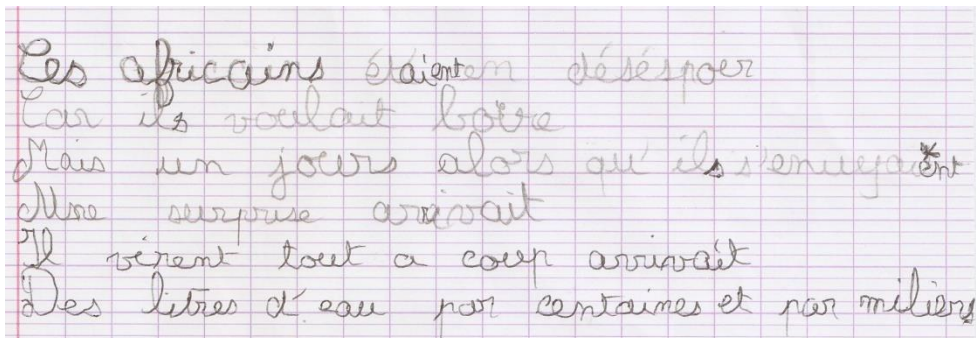 Les africains étaient en déséspoer
Car ils voulait boire
Mais un jours alors qu'ils s'enuyaient
Une surprise arrivait
Il virent tout a coup arrivait
Des litres d'eau par centaines et par miliers